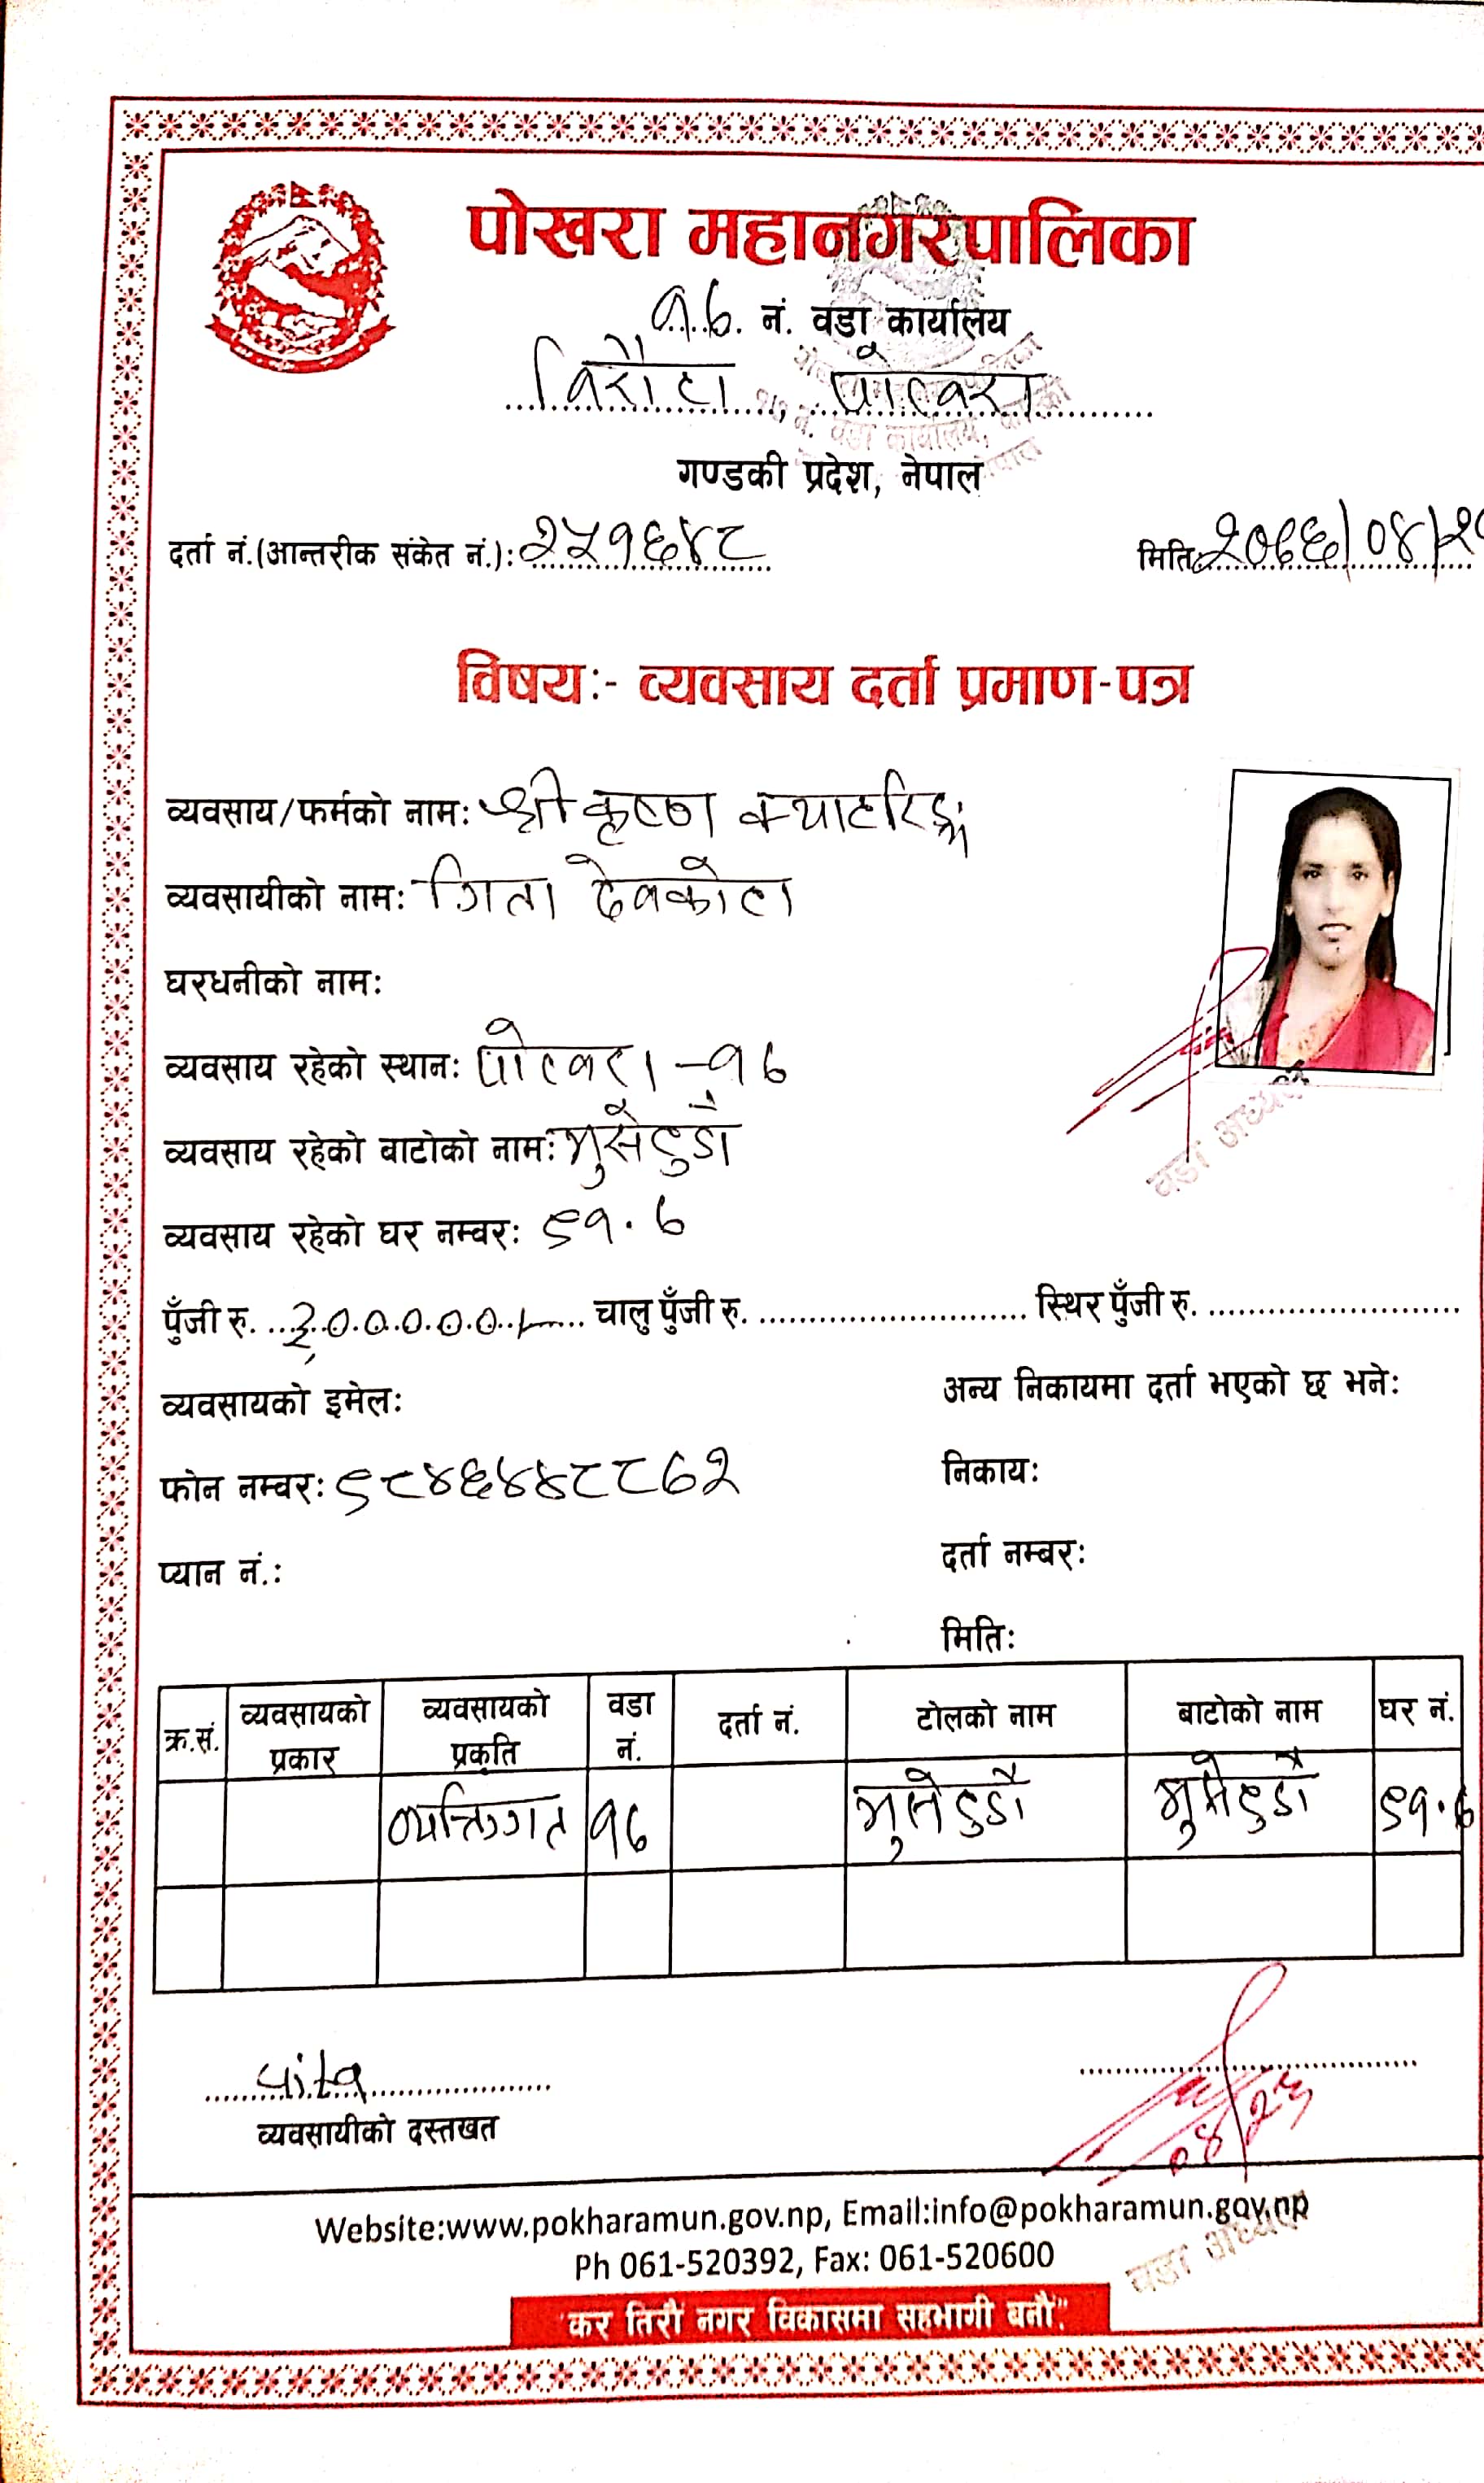 पोखरा महानगरपालिका
१७. नं. वडा कार्यालय
विरौटा पोखरा
गण्डकी प्रदेश, नेपाल
दर्ता नं.(आन्तरीक संकेत नं.): २५१६४८ मिति: २०७६/०४/२
विषयः- व्यवसाय दर्ता प्रमाण-पत्र
व्यवसाय/फर्मको नामः श्री कृष्ण क्याटरिङ्ग
व्यवसायीको नामः गिता देवकोटा
घरधनीको नामः
व्यवसाय रहेको स्थानः पोखरा -१७
व्यवसाय रहेको बाटोको नामः
व्यवसाय रहेको घर नम्वरः ९१.७
पुँजी रु. ३,०००००।- चालु पुँजी रु. स्थिर पुँजी रु.
व्यवसायको इमेलः अन्य निकायमा दर्ता भएको छ भनेः
फोन नम्वरः ९८४६४४८८७२ निकायः
प्यान नं.: दर्ता नम्बरः
मितिः
क्र.सं. व्यवसायको प्रकार व्यवसायको प्रकृति वडा नं. दर्ता नं. टोलको नाम बाटोको नाम घर नं.
व्यक्तिगत १७ ९१.७
gita
व्यवसायीको दस्तखत
वडा अध्यक्ष
Website:www.pokharamun.gov.np, Email:info@pokharamun.gov.np
Ph 061-520392, Fax: 061-520600
वडा अध्यक्ष
"कर तिरौं नगर विकासमा सहभागी बनौं"